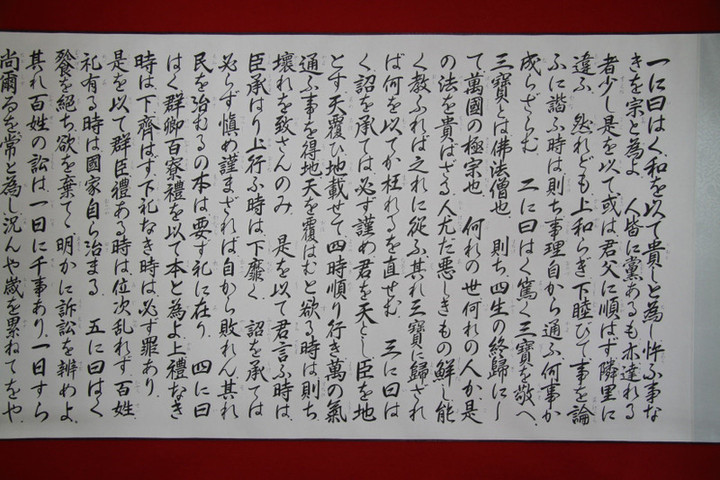 一に曰はく和を以て貴しと為し忤ふ事な
きを宗と為よ 人皆に黨あるも亦達れる
者少し是を以て或は君父に順はす隣里に
違ふ 然れども上和らき下睦びて事を論
ふに諧ふ時は則ち事理自から通ふ何事か
成らざらむ 二に曰はく篤く三寶を敬へ
三寶とは佛法僧也 則ち四生の終歸にし
て萬國の極宗也 何れの世何れの人か是
の法を貴ばざる人尤だ悪しきもの鮮し能
く教ふれば之れに從ふ其れ三寶に歸され
ば何を以てか枉れるを直せむ 三に曰は
く詔を承ては必す謹め君を天とし臣を地
とす天覆ひ地載せて四時順り行き萬の氣
通ふ事を得地天を覆はむと欲る時は則ち
壊れを致さんのみ 是を以て君言ふ時は
臣承はり上行ふ時は下靡く 詔を承ては
必らす慎め謹まされば自から敗れん其れ
民を治むるの本は要す礼に在り 四に曰
はく群卿百寮禮を以て本と為よ上禮なき
時は下齊はず下礼なき時は必す罪あり
是を以て群臣禮ある時は位次乱れす百姓
礼有る時は國家自ら治まる 五に曰はく
餮を絶ち欲を棄てて明かに訴訟を辨めよ
其れ百姓の訟は一日に千事あり一日すら
尚爾るを常と為し況んや歳を累ねてをや